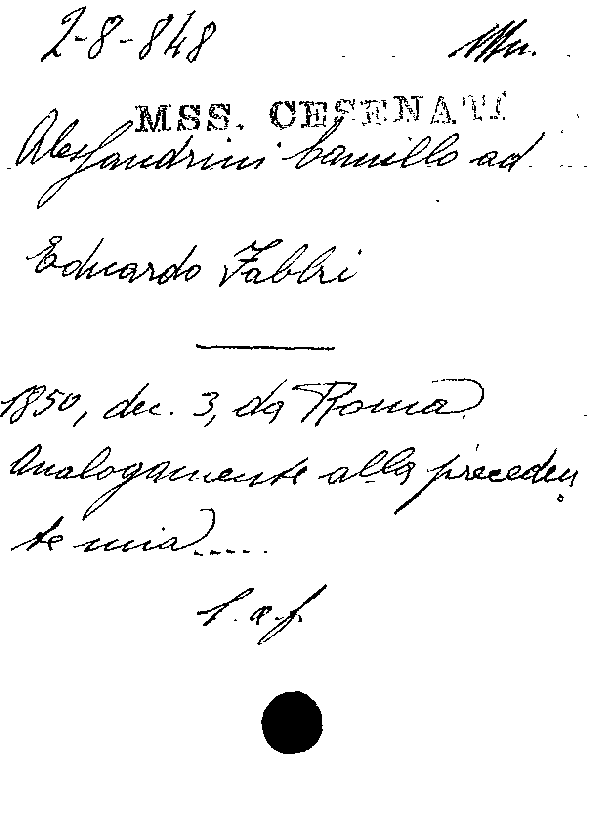 2-8-848
MSS. CESENATI
Alessandrini Camillo ad
Eduardo Fabbri
1850, dec. 3, da Roma.
Analogamente alla preceden
te mia.....
l. a f.